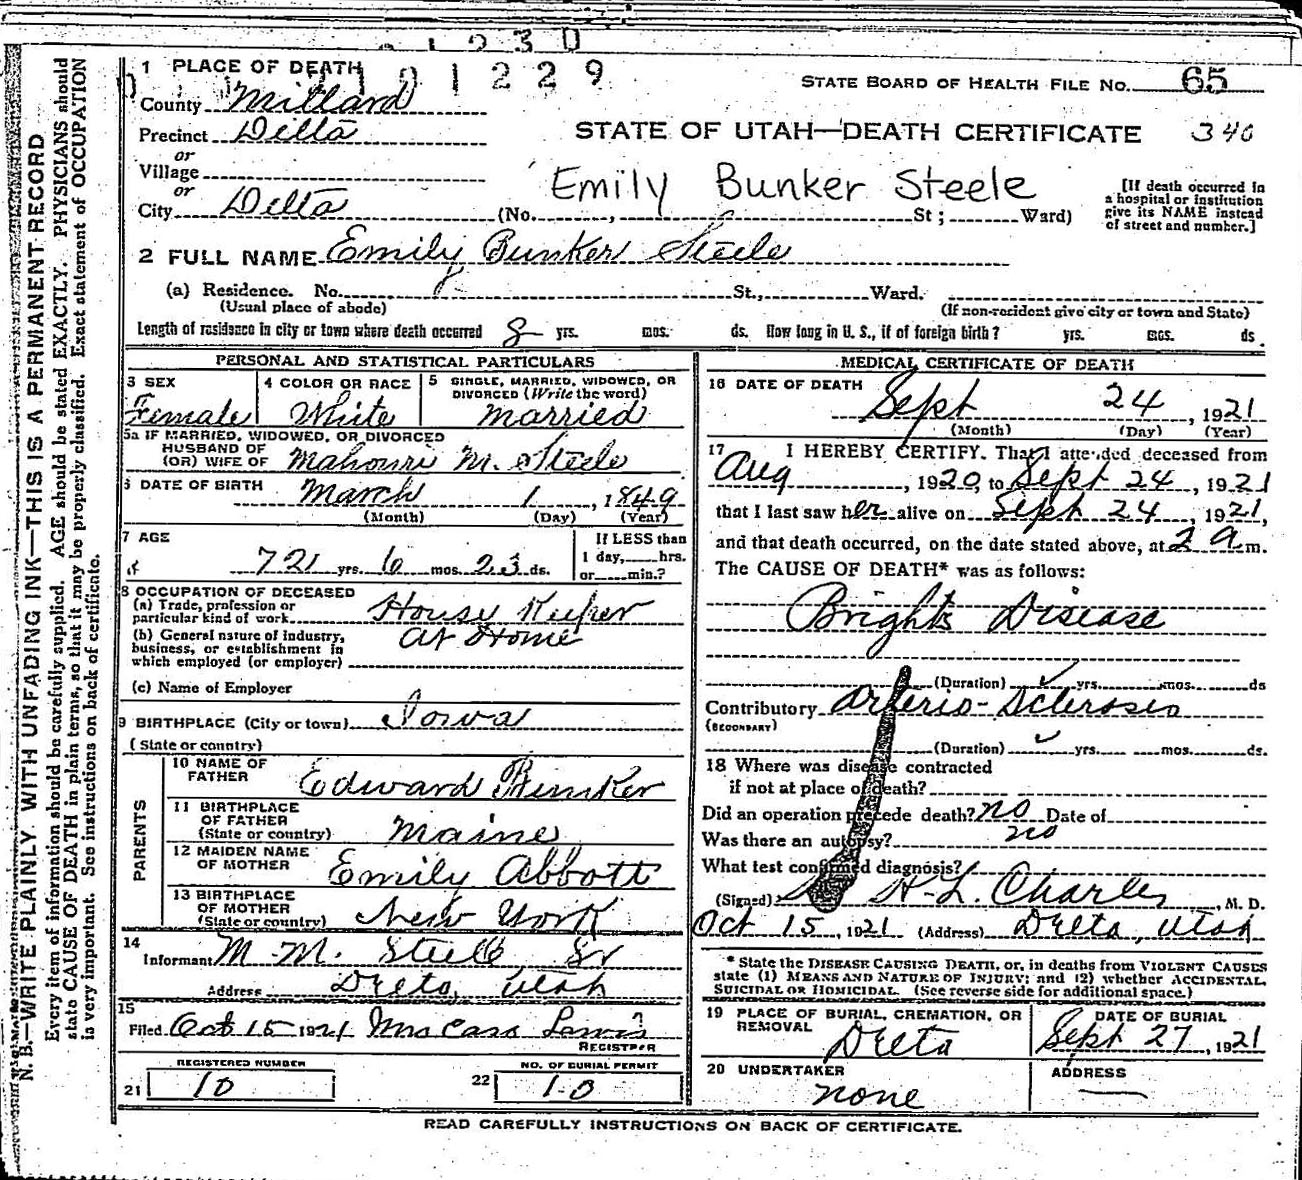 1 2 3 0
1 PLACE OF DEATH
2 1 0 1 2 2 9
STATE BOARD OF HEALTH FILE No. 65
County Millard
Precinct Delta
STATE OF UTAH—DEATH CERTIFICATE 340
or
Village
or
City Delta
Emily Bunker Steele
(No. , St ; Ward)
[If death occurred in
a hospital or institution
give its NAME instead
of street and number.]
2 FULL NAME Emily Bunker Steele
(a) Residence. No. St., Ward.
(Usual place of abode)
(If non-resident give city or town and State)
Length of residence in city or town where death occurred 8 yrs. mos. ds. How long in U. S., if of foreign birth? yrs. mos. ds.
PERSONAL AND STATISTICAL PARTICULARS
3 SEX
Female
4 COLOR OR RACE
White
5 SINGLE, MARRIED, WIDOWED, OR
DIVORCED (Write the word)
married
5a IF MARRIED, WIDOWED, OR DIVORCED
HUSBAND OF
(OR) WIFE OF Mahonri M. Steele
6 DATE OF BIRTH March 1, 1849
(Month) (Day) (Year)
7 AGE
721 yrs. 6 mos. 23 ds.
If LESS than
1 day, hrs.
or min.?
8 OCCUPATION OF DECEASED
(a) Trade, profession or
particular kind of work House Keeper
(b) General nature of industry, at Home
business, or establishment in
which employed (or employer)
(c) Name of Employer
9 BIRTHPLACE (City or town) Iowa
(State or country)
PARENTS
10 NAME OF
FATHER Edward Bunker
11 BIRTHPLACE
OF FATHER
(State or country) Maine
12 MAIDEN NAME
OF MOTHER Emily Abbott
13 BIRTHPLACE
OF MOTHER
(State or country) New York
14
Informant M. M. Steele Sr
Address Delta, Utah
15
Filed Oct 15 1921 Mrs Cass Lewis
REGISTRAR
REGISTERED NUMBER
21 10
NO. OF BURIAL PERMIT
22 10
MEDICAL CERTIFICATE OF DEATH
16 DATE OF DEATH
Sept 24, 1921
(Month) (Day) (Year)
17 I HEREBY CERTIFY. That I attended deceased from
Aug, 1920, to Sept 24, 1921
that I last saw her alive on Sept 24, 1921,
and that death occurred, on the date stated above, at 2 a m.
The CAUSE OF DEATH* was as follows:
Brights Disease
(Duration) ✓ yrs. mos. ds
Contributory Arterio-Sclerosis
(SECONDARY)
(Duration) ✓ yrs. mos. ds.
18 Where was disease contracted
if not at place of death?
Did an operation precede death? no Date of
Was there an autopsy? no
What test confirmed diagnosis?
(Signed) H. L. Charles, M. D.
Oct 15, 1921 (Address) Delta, Utah
* State the DISEASE CAUSING DEATH, or, in deaths from VIOLENT CAUSES
state (1) MEANS AND NATURE OF INJURY; and (2) whether ACCIDENTAL
SUICIDAL OR HOMICIDAL. (See reverse side for additional space.)
19 PLACE OF BURIAL, CREMATION, OR
REMOVAL Delta
DATE OF BURIAL
Sept 27, 1921
20 UNDERTAKER
none
ADDRESS
READ CAREFULLY INSTRUCTIONS ON BACK OF CERTIFICATE.
N. B.—WRITE PLAINLY, WITH UNFADING INK—THIS IS A PERMANENT RECORD
Every item of information should be carefully supplied. AGE should be stated EXACTLY. PHYSICIANS should
state CAUSE OF DEATH in plain terms, so that it may be properly classified. Exact statement of OCCUPATION
is very important. See instructions on back of certificate.